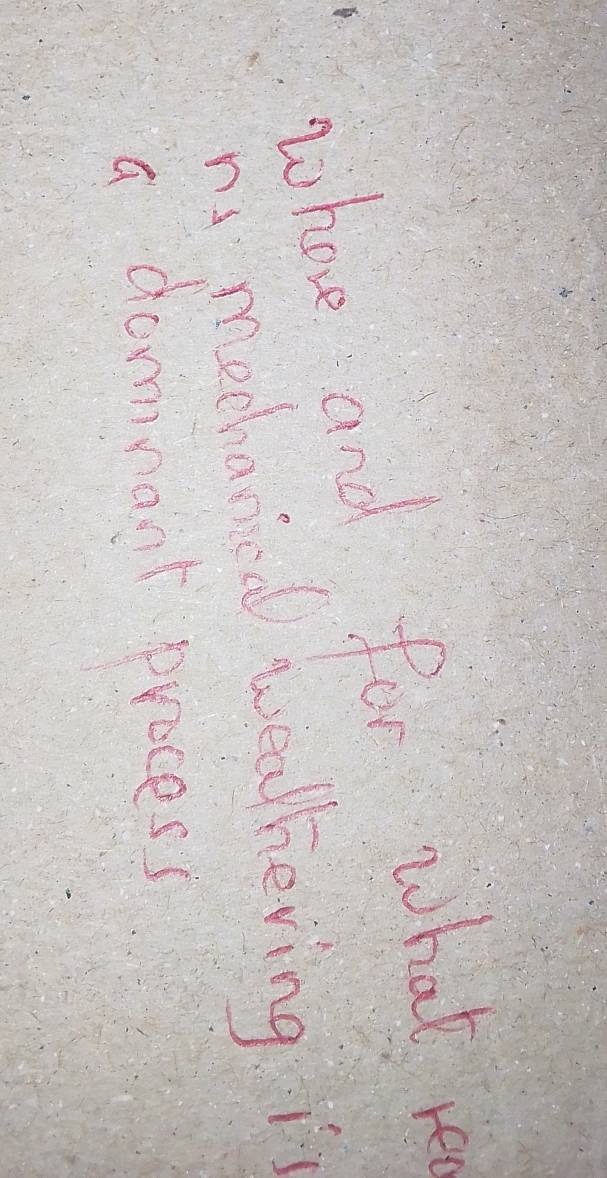 where and for what rea
ns mechanical weathering is
a dominant process